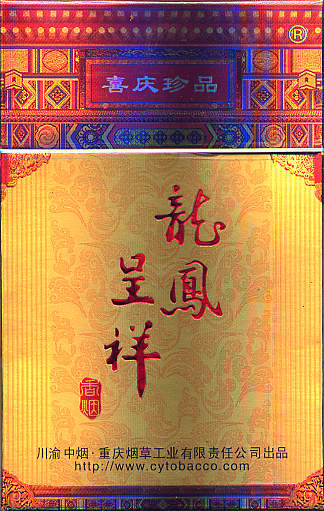 喜庆珍品
®
龍鳳
呈祥
香烟
川渝中烟·重庆烟草工业有限责任公司出品
http://www.cytobacco.com